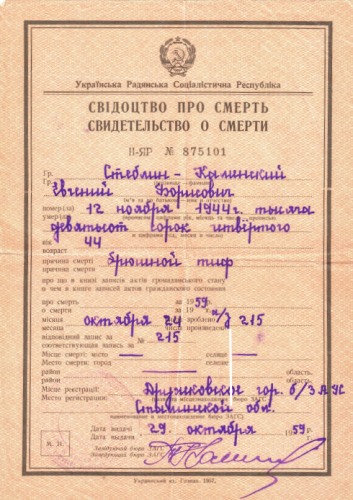 Українська Радянська Соціалістична Республіка
СВІДОЦТВО ПРО СМЕРТЬ
СВИДЕТЕЛЬСТВО О СМЕРТИ
II-ЯР № 875101
Гр. Стеблин-Каминский
Гр.
Евгений Борисович
помер(ла) 12 ноября 1944 г. тысяча
умер(ла)
девятьсот сорок четвёртого
вік 44
возраст
причина смерті брюшной тиф
причина смерти
про що в книзі записів актів громадянського стану
о чем в книге записей актов гражданского состояния
про смерть за 1959 р.
о смерти за 19
місяця октября 24 зроблено 215
месяца числа произведена
відповідний запис за № 215
соответствующая запись за
Місце смерті: місто — селище —
Место смерти: город селение
район — область
район область
Місце реєстрації: Дружковское гор. б/ЗАГС
Место регистрации:
Сталинской обл.
найменування і місцезнаходження бюро ЗАГС
Дата видачі 29. октября 1959 г.
Дата выдачи
М. П.
Завідуючий бюро ЗАГС
Заведующий бюро ЗАГС